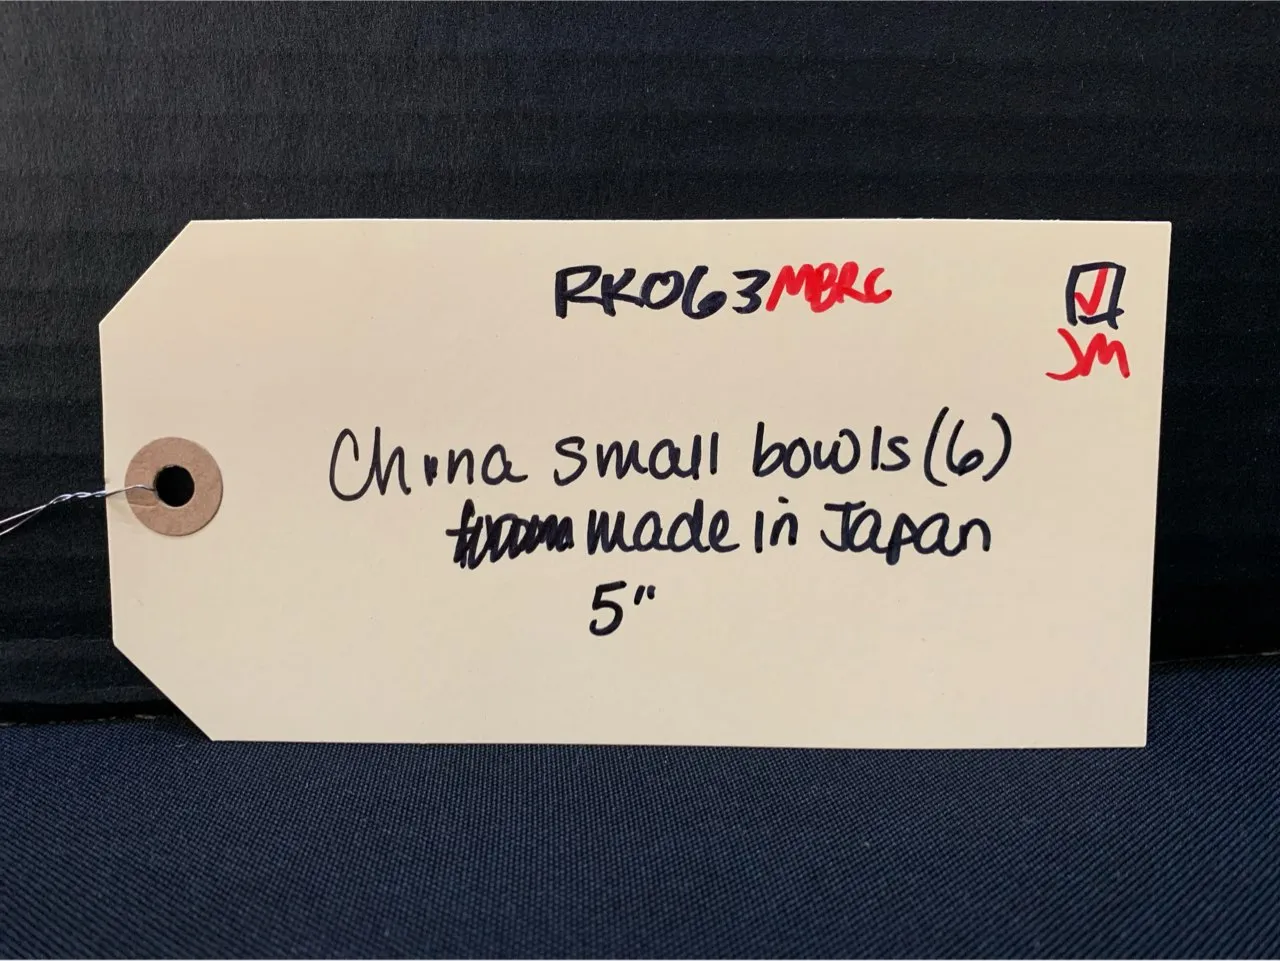 RK063MBRC
JM
China small bowls (6)
made in Japan
5"